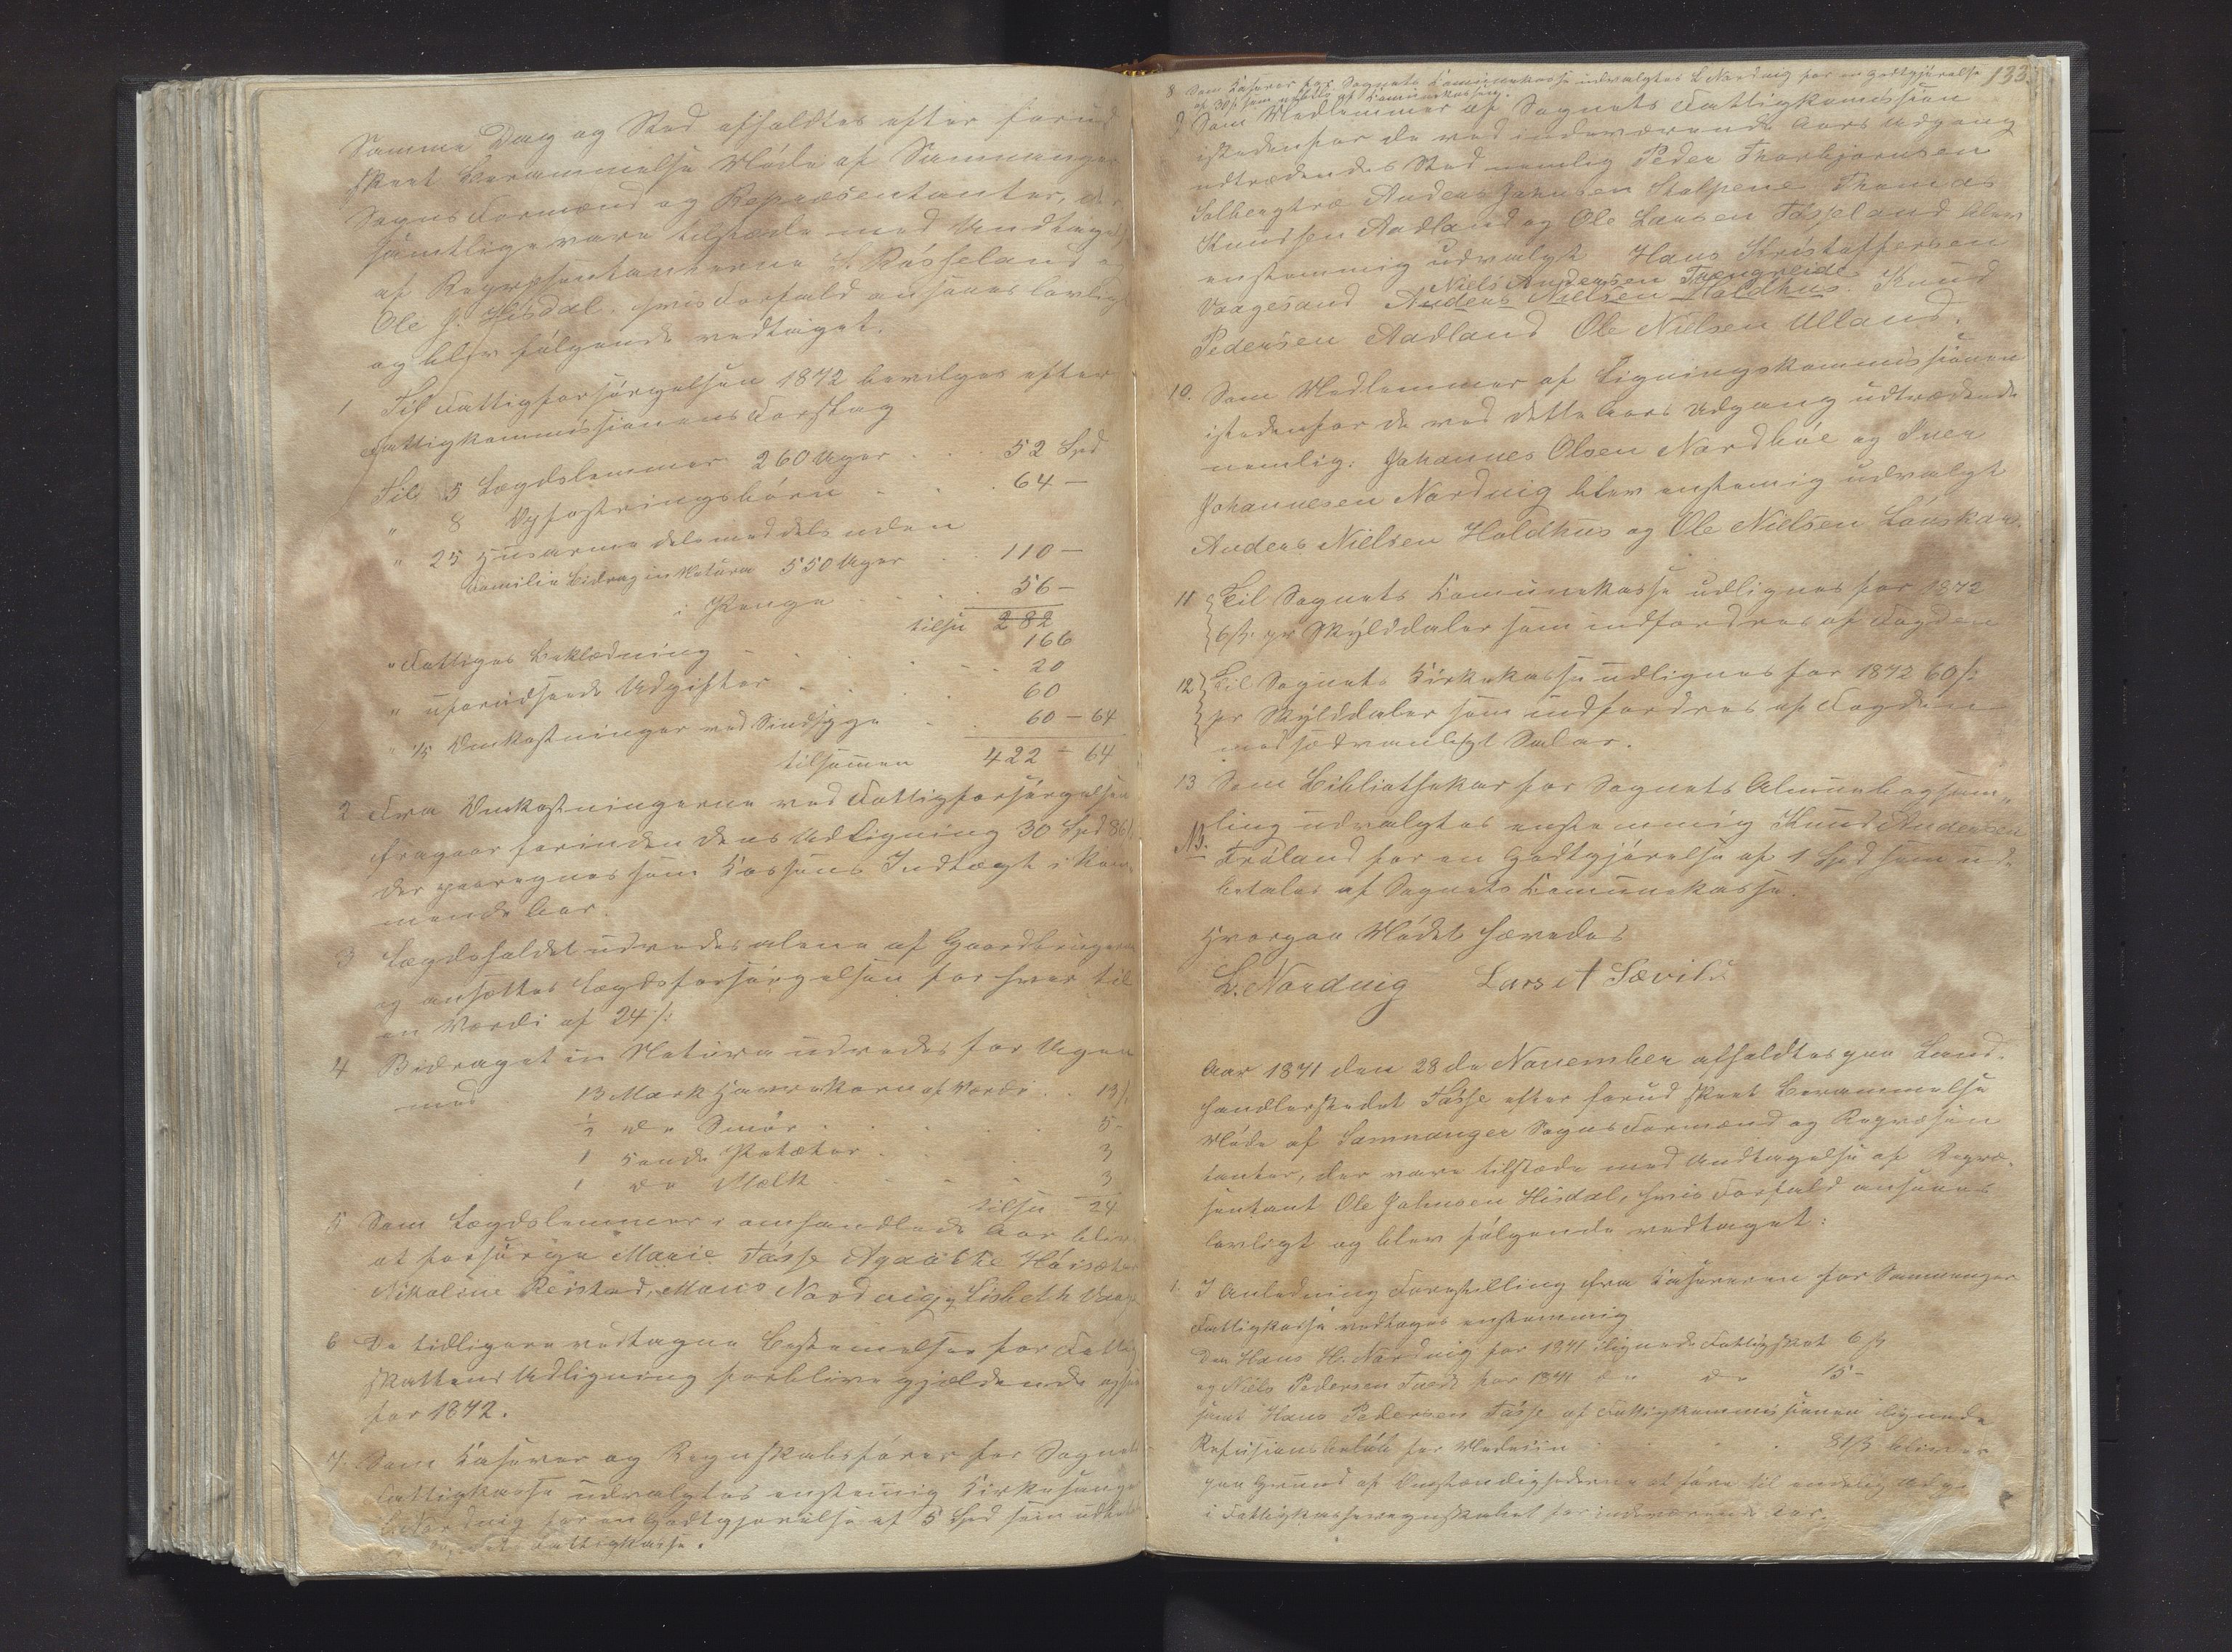 Samme Dag og Sted afholdtes efter forud
skeet Berammelse Møde af Samnanger
Sogns Formænd og Repræsentanter, der
samtlige vare tilstæde med Undtagelse
af Repræsentanterne L. Røsseland og
Ole J. Hisdal, hvis Forfald ansees lovligt
og blev følgende vedtaget.
1 Til Fattigforsørgelsen 1872 bevilges efter
Fattigkommissionens Forslag
Til 5 Lægdslemmer 260 Uger . . . 52 Spd
" 8 Opfostringsbørn . . . 64 —
" 25 Husarme dels med dels uden
Familie Bidrag in Natura 550 Uger . 110 —
i Penge . . . 56 —
tilsn 282
166
" Fattiges Beklædning . . . 20
" uforudseede Udgifter . . . 60
" 1/5 Omkostninger ved Sindsyge . . . 60 — 64
tilsammen 422 — 64
2 Fra Omkostningerne ved Fattigforsørgelsen
fragaar forinden dens Udligning 30 Spd 86 s.
der paaregnes som Kassens Indtægt i kom-
mende Aar.
3 Lægdsholdet udredes alene af Gaardbrugerne
og ansættes Lægdsforsørgelsen for hver til
en Værdi af 24 s:
4 Bidraget in Natura udredes for Ugen
med 13 Mark Havrekorn af Værdi . . 13 s.
1/2 do Smør . . . 5 -
1 Kande Potæter . . . 3
1 do Melk . . . 3
tilsn 24
5 Som Lægdslemmer i omhandlede Aar blive
at forsørge Marie Tøsse Agaathe Høisæter
Nikoline Reistad, Mons Nordvig og Lisbeth
6 De tidligere vedtagne Bestemelser for Fattig
skattens Udligning forblive gjældende ogsaa
for 1872.
7. Som Kasserer og Regnskabsfører for Sognets
Fattigkasse udvalgtes enstemig Kirkesanger
L. Nordvig for en Godtgjørelse af 5 Spd som udbetales
Fattigkasse.
133.
8 Som Kaserer for Sognets Kommunekasse udvalgtes L Nordvig for en Godtgjørelse
af 30 s som udbetales af Kommunekassen.
9 Som Medlemmer af Sognets Fattigkomission
istedenfor de ved indeværende Aars Udgang
udtrædendes Sted nemlig Peder Thorbjørnsen
Solbergtræ Anders Johnsen Stølpene Thomas
Knudsen Aadland og Ole Larsen Tøsseland blev
enstemmig udvalgt Hans Kristoffersen
Niels Andersen Trengereide
Vaagesand Anders Nielsen Holdhus. Knud
Pedersen Aadland Ole Nielsen Ulland.
10. Som Medlemmer af Ligningskommissionen
istedenfor de ved dette Aars Udgang udtrædende
nemlig: Johannes Olsen Nordbøe og Iver
Johannesen Nordvig blev enstemig udvalgt
Anders Nielsen Holdhus og Ole Nielsen Lønskar.
11 Til Sognets Komunekasse udlignes for 1872
6 s. pr Skylddaler som indfordres af Fogden
12 Til Sognets Kirkekasse udlignes for 1872 60 s:
pr Skylddaler som indfordres af Fogden
mod sædvanligt Salær.
13 Som Bibliothekar for Sognets Almuebogsam-
ling udvalgtes enstemmig Knud Andersen
NB. Frøland for en Godtgjørelse af 1 Spd som ud-
betales af Sognets Komunekasse.
Hvorpaa Mødet hævedes
L. Nordvig Lars A Sævild
Aar 1871 den 28de November afholdtes paa Land-
handlerstedet Tøsse efter forud skeet Berammelse
Møde af Samnanger Sogns Formænd og Repræsen
tanter, der vare tilstæde med Undtagelse af Repræ-
sentant Ole Johnsen Hisdal, hvis Forfald ansees
lovligt og blev følgende vedtaget:
1. I Anledning Forestilling fra Kasereren for Samnanger
Fattigkasse vedtages enstemmig
Den Hans H. Nordvig for 1871 lignede Fattigskat 6 s
og Niels Pedersen Tveit for 1871 do do 15 -
samt Hans Pedersen Tøsse af Fattigkommissionen lignede
Refusionsbeløb for Medecin . . . 81 s bliver
paa Grund af Omstændighederne at føre til endelig Udg.
i Fattigkasseregnskabet for indeværende Aar.